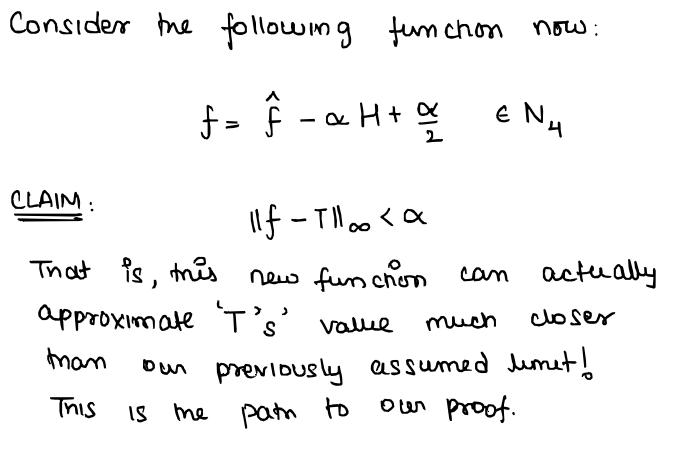 Consider the following function now:
f = f̂ - αH + α/2 ∈ N₄
CLAIM:
||f - T||∞ < α
That is, this new function can actually
approximate 'T's' value much closer
than our previously assumed limit!
This is the path to our proof.